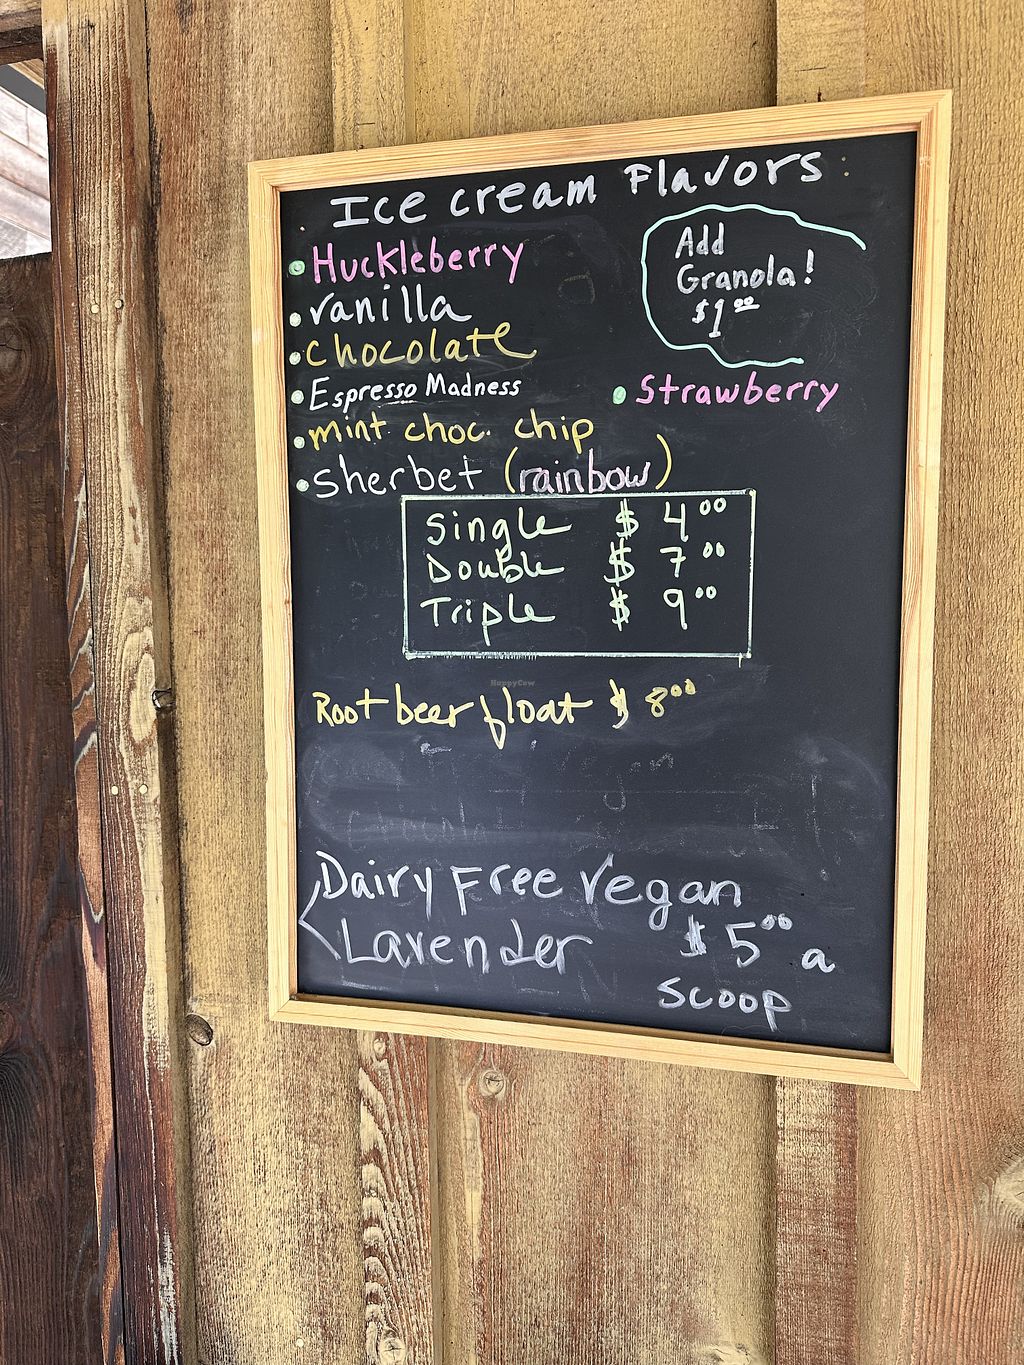 Ice cream Flavors
• Huckleberry
• vanilla
• chocolate
• Espresso Madness
• mint choc. chip
• sherbet (rainbow)
Add
Granola!
$1.00
• Strawberry
Single $ 4.00
Double $ 7.00
Triple $ 9.00
HappyCow
Root beer float $ 8.00
Dairy Free Vegan
Lavender $ 5.00 a
scoop